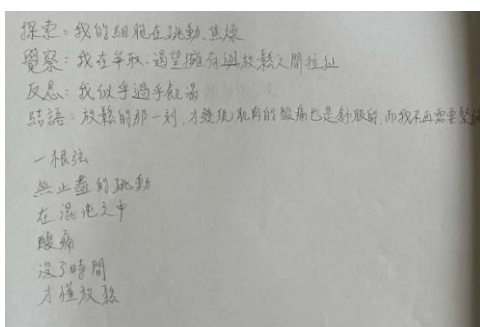 探索：我的細胞在跳動、焦燥
覺察：我在爭取、渴望擁有與放鬆之間拉扯
反思：我似乎過乎飢渴
結語：放鬆的那一刻，才發現肌肉的酸痛也是舒服的，而我不再需要緊
一根弦
無止盡的跳動
在混沌之中
酸痛
沒了時間
才懂放鬆